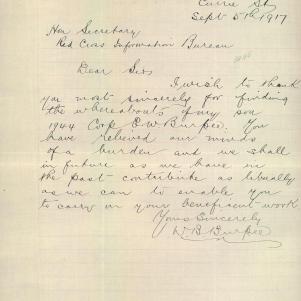 Currie St
Sept 5th 1917
Hon Secretary
Red Cross Information Bureau
Dear Sir
I wish to thank
you most sincerely for finding
the whereabouts of my son
1944 Corp E W Burpee. You
have relieved our minds
of a burden and we shall
in future as we have in
the past contribute as liberally
as we can to enable you
to carry on your beneficent work
Yours Sincerely
W B Burpee